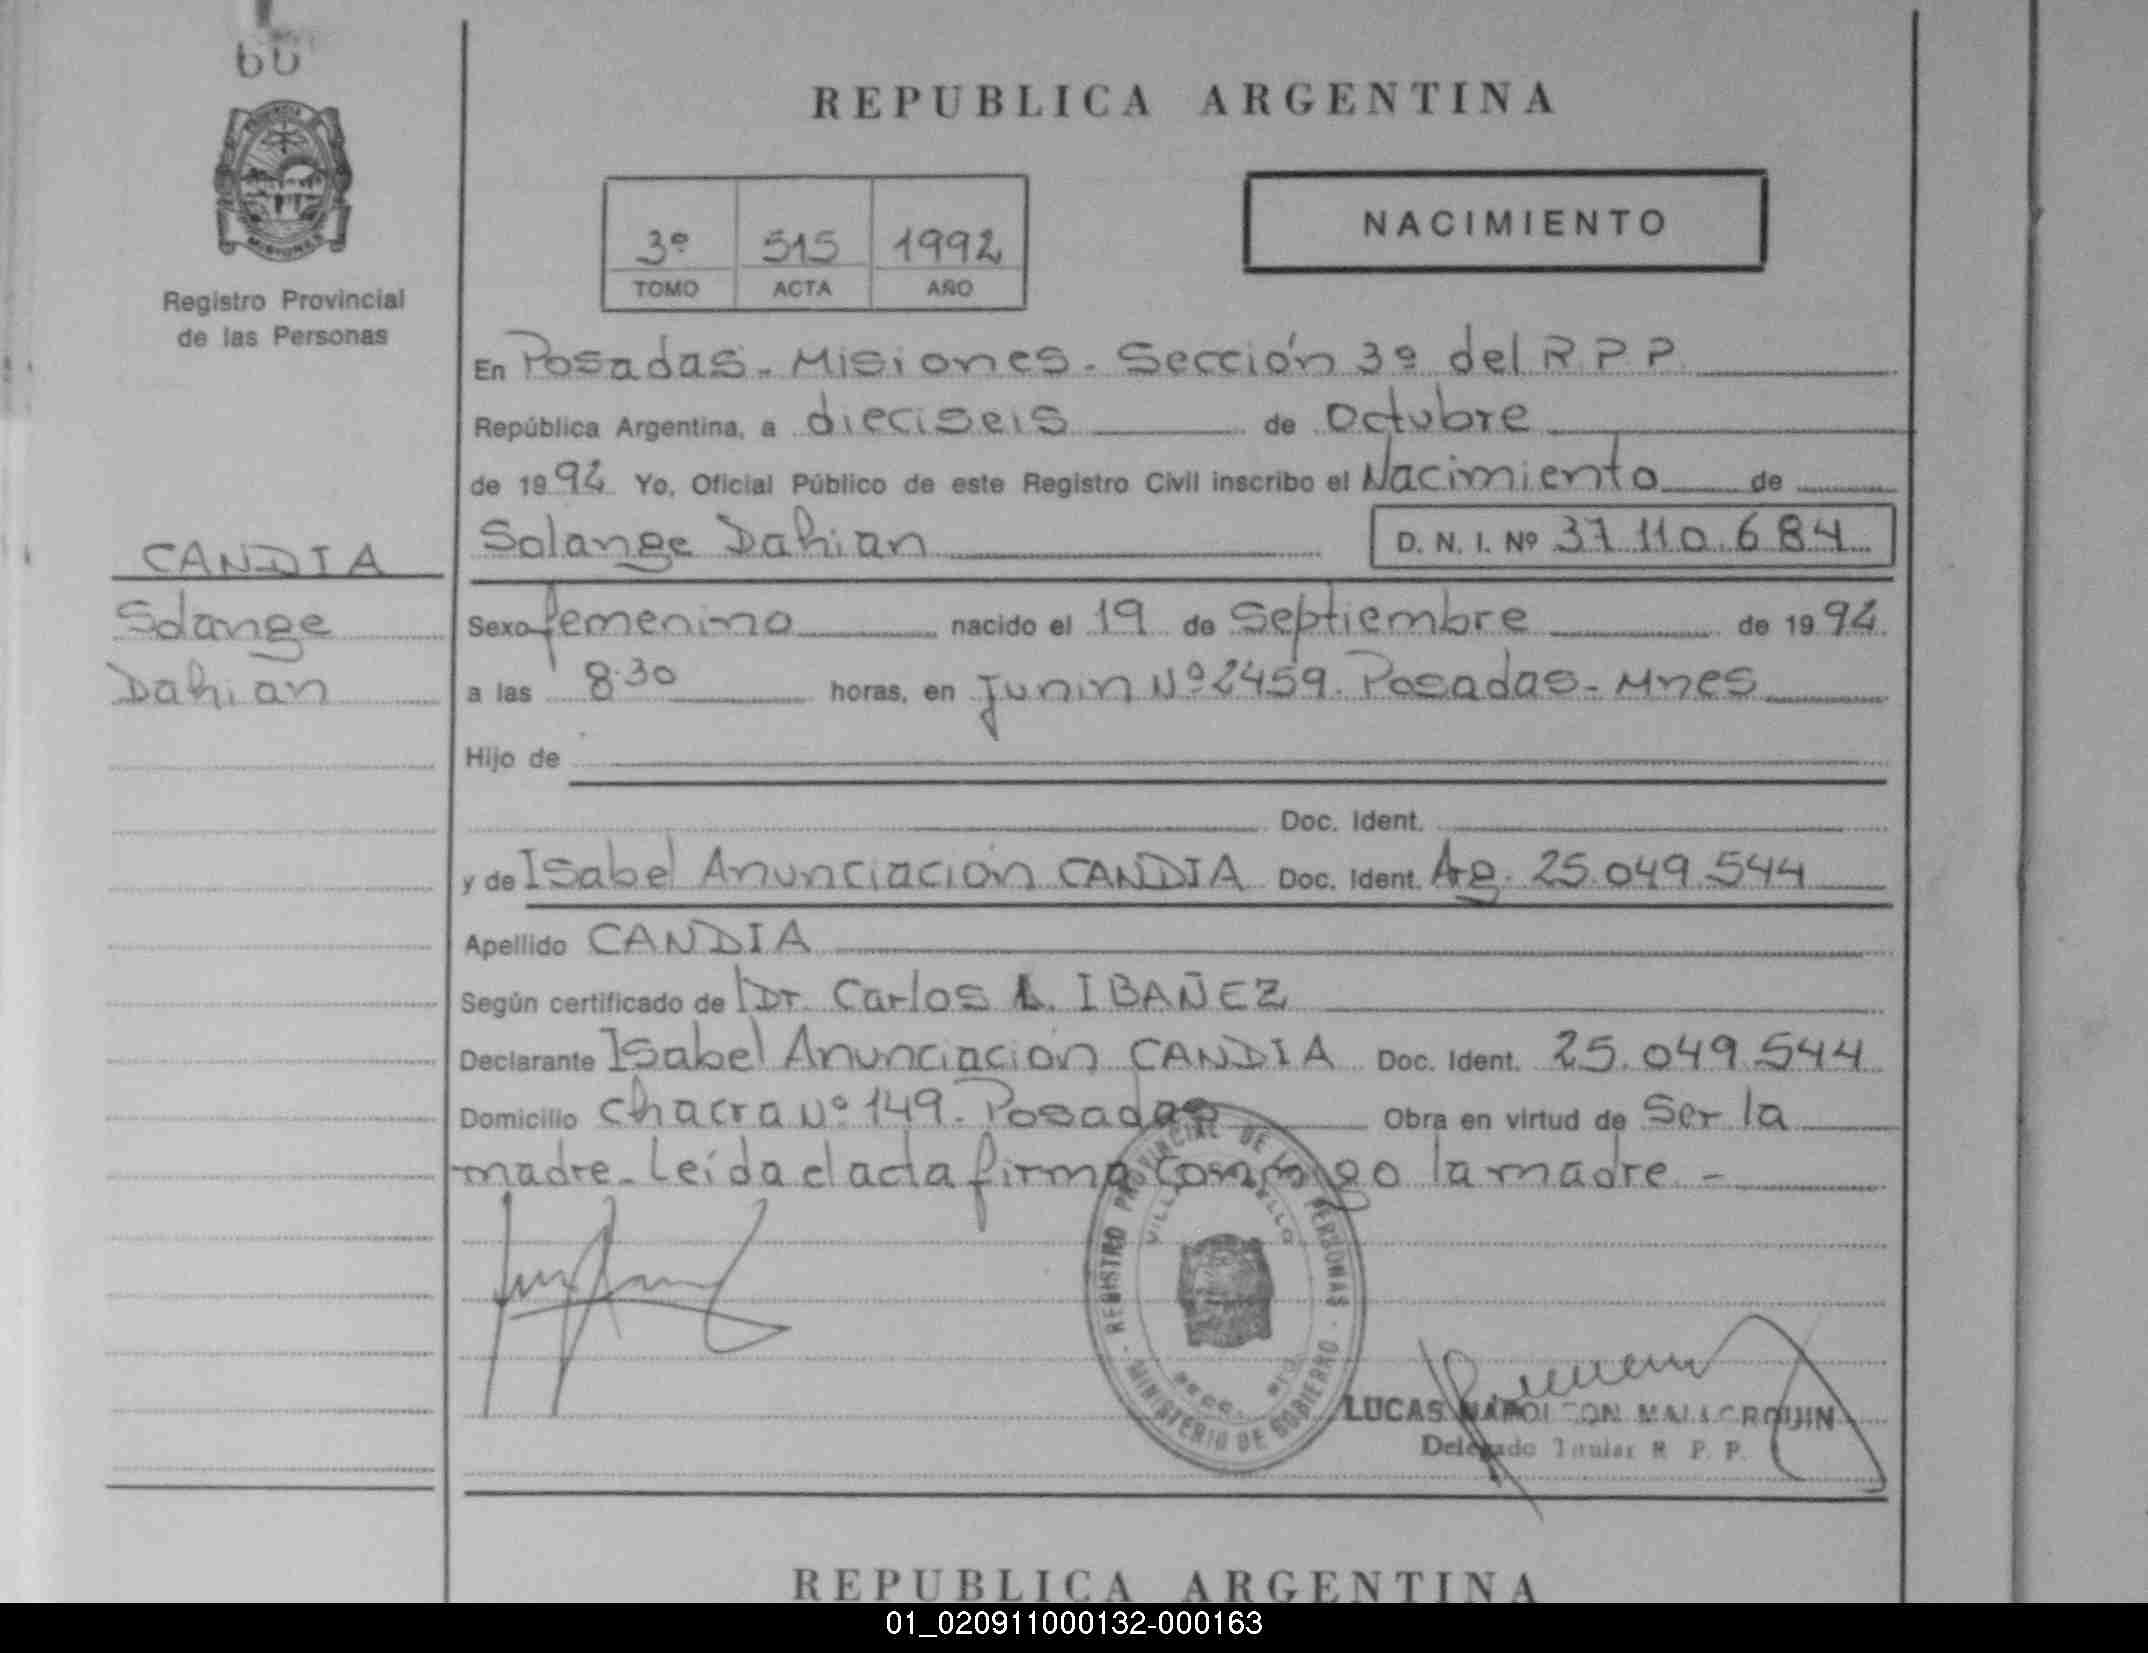 60
REPUBLICA ARGENTINA
3º 515 1992
TOMO ACTA AÑO
NACIMIENTO
Registro Provincial
de las Personas
En Posadas - Misiones - Sección 3º del R P P
República Argentina, a dieciseis de Octubre
de 1992 Yo, Oficial Público de este Registro Civil inscribo el Nacimiento de
Solange Dahian D. N. I. Nº 37.110.684
CANDIA
Solange
Dahian
Sexo femenino nacido el 19 de Septiembre de 1992
a las 8.30 horas, en Junin Nº 2459. Posadas - Mnes
Hijo de
Doc. Ident.
y de Isabel Anunciación CANDIA Doc. Ident. Arg. 25.049.544
Apellido CANDIA
Según certificado de Dr. Carlos L. IBAÑEZ
Declarante Isabel Anunciación CANDIA Doc. Ident. 25.049.544
Domicilio Chacra Nº 149 - Posadas Obra en virtud de Ser la
madre - Leída el acta firma conmigo la madre -
REGISTRO PROVINCIAL DE LAS PERSONAS
MINISTERIO DE GOBIERNO
LUCAS NAPOLEON MALLORQUIN
Delegado Titular R. P. P.
REPUBLICA ARGENTINA
01_020911000132-000163